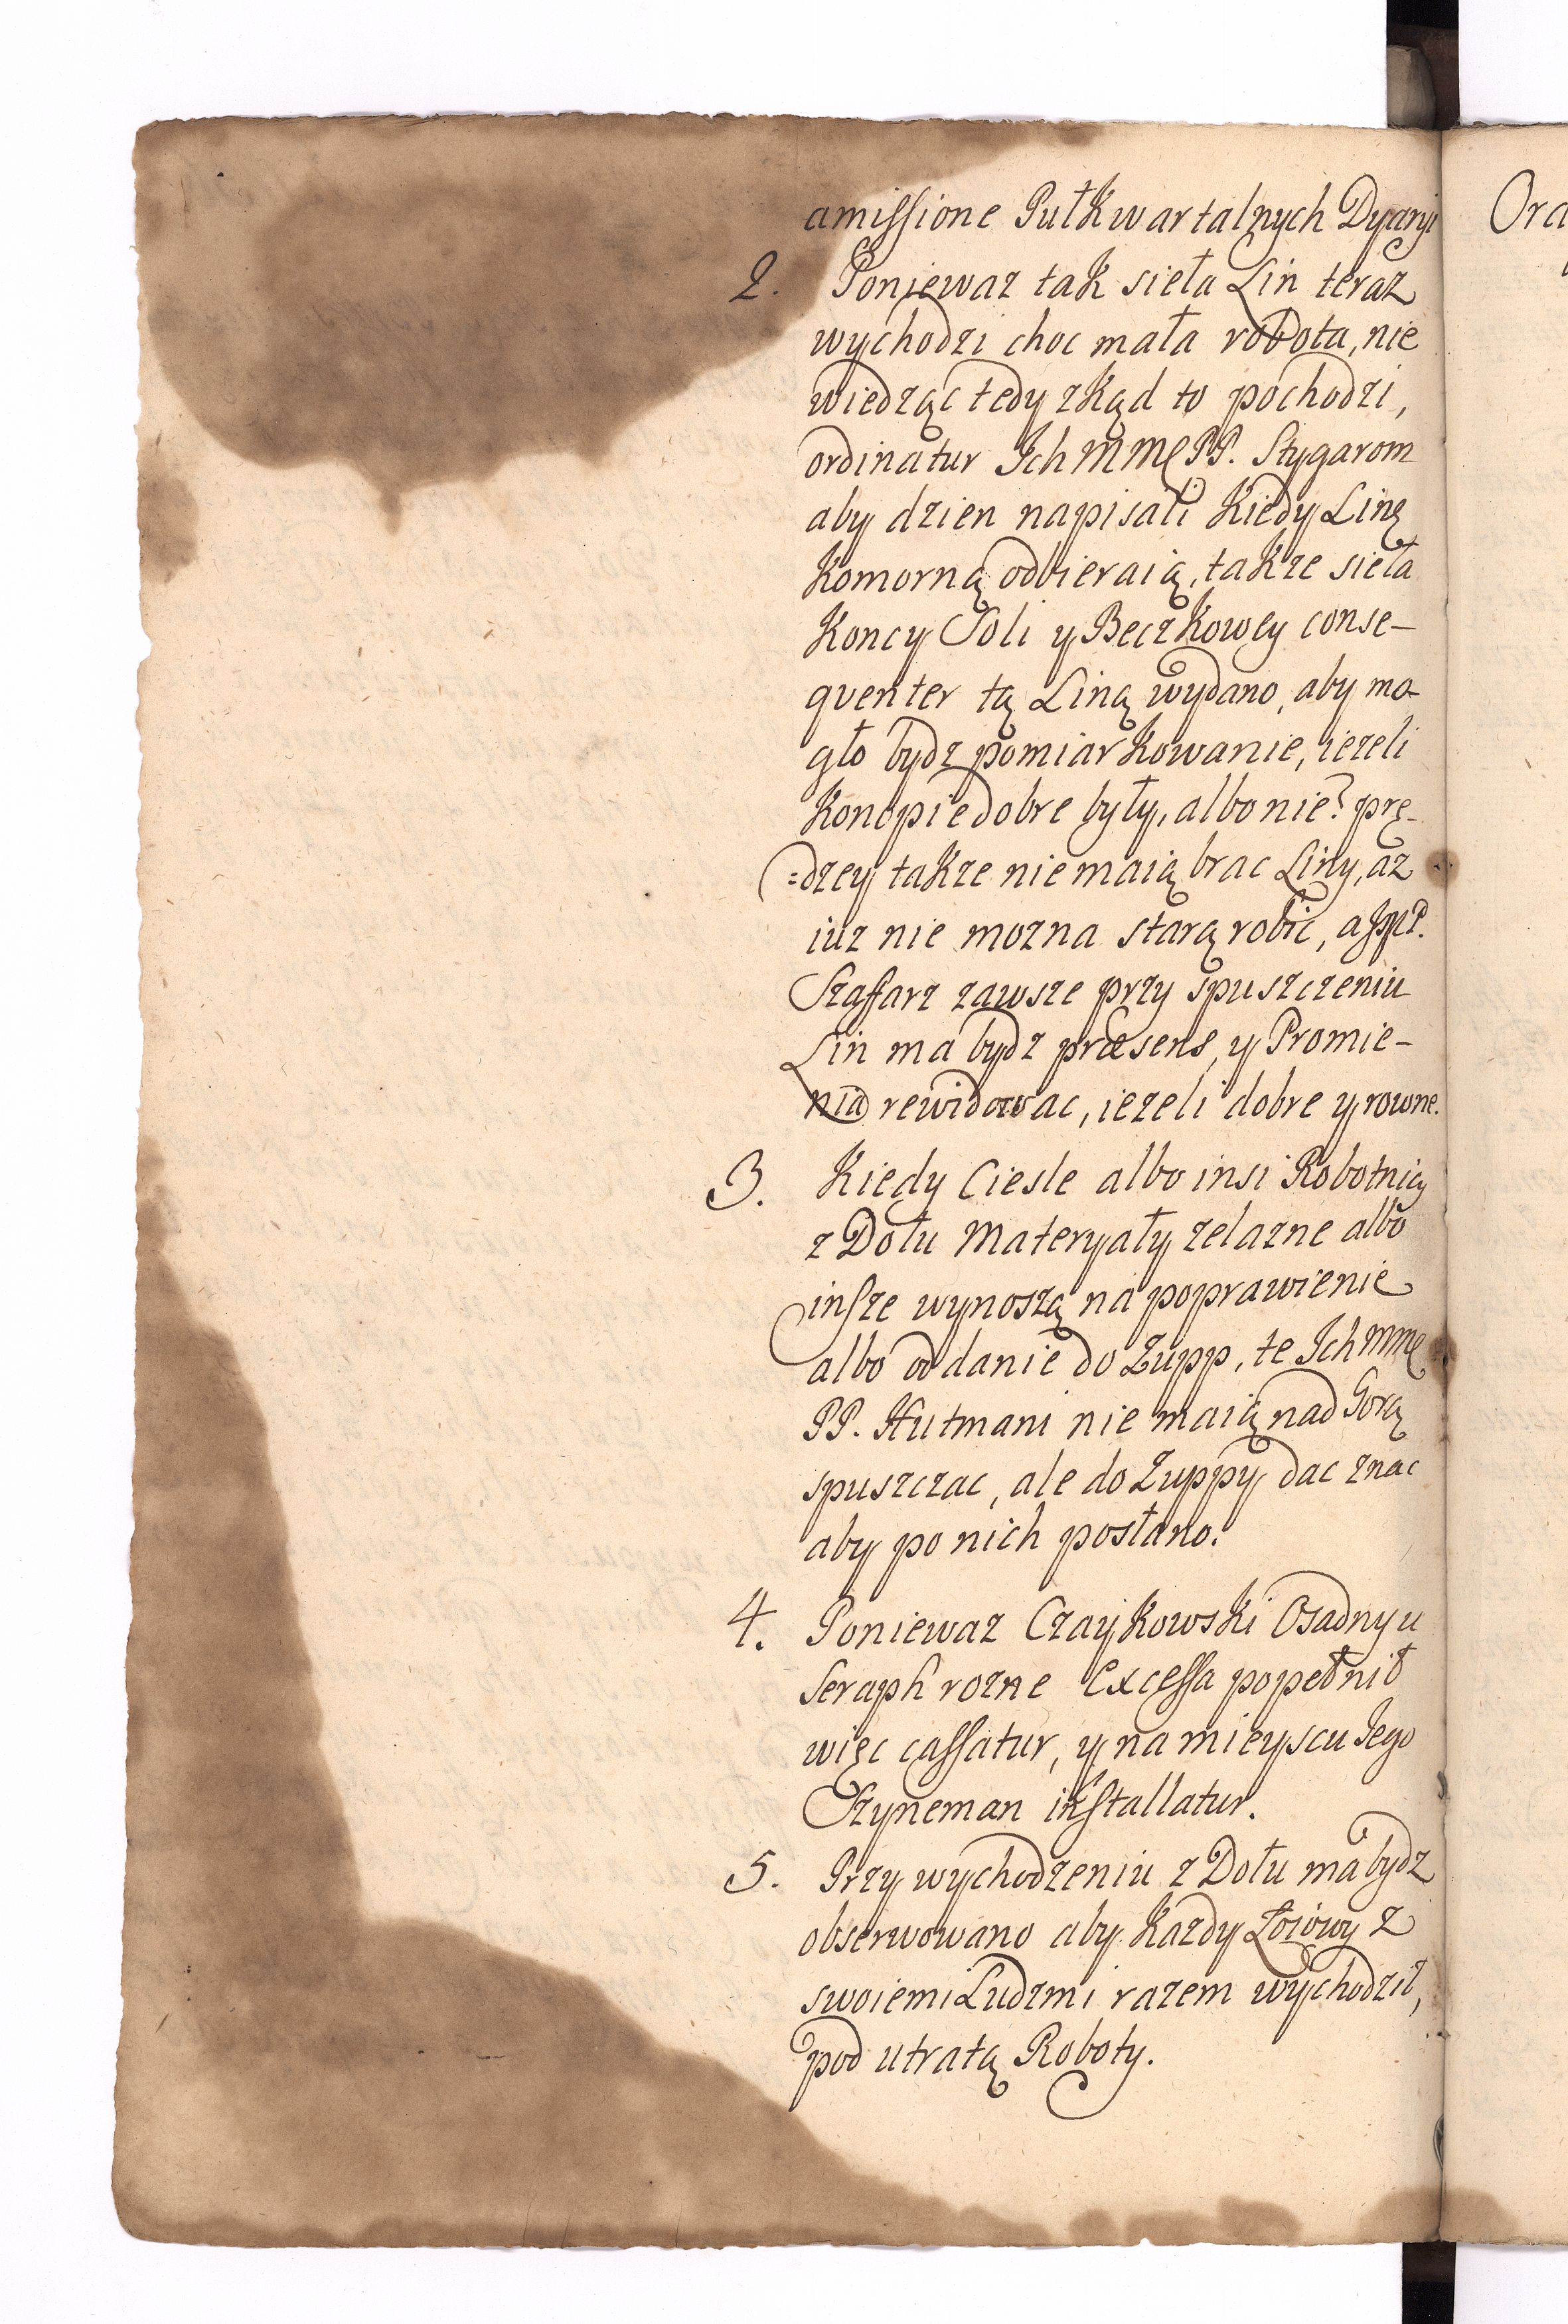 amissione Pułkwartalnych Dyaryi
2. Poniewaz tak sieła Lin teraz
wychodzi choc mała robota, nie
wiedząc tedy zkąd to pochodzi,
ordinatur Ich MM PP. Stygarom
aby dzien napisali kiedy Linę
komorną odbieraią, takze sieła
koncy Soli y Beczkowey conse-
qventer tą Liną wydano, aby mo-
gło bydz pomiarkowanie, iezeli
konopie dobre były, albo nie? prę-
=dzey takze nie maią brac Liny, az
iuz nie mozna starą robic, a JMP.
Szafarz zawsze przy spuszczeniu
Lin ma bydz præsens, y Promie-
nia rewidowac, iezeli dobre y rowne.
3. Kiedy Ciesle albo insi Robotnicy
z Dołu Materyały zelazne albo
insze wynoszą na poprawienie
albo oddanie do Zupp, te Ich MM
PP. Hutmani nie maią nad Gorą
spuszczac, ale do Zuppy dac znac
aby po nich posłano.
4. Poniewaz Czaykowski Osadny u
Seraph rozne Excessa popełnił
więc cassatur, y na mieyscu Iego
Szyneman installatur.
5. Przy wychodzeniu z Dołu ma bydz
obserwowano aby kazdy Łoiowy z
swoiemi Ludzmi razem wychodził,
pod utratą Roboty.
Ora